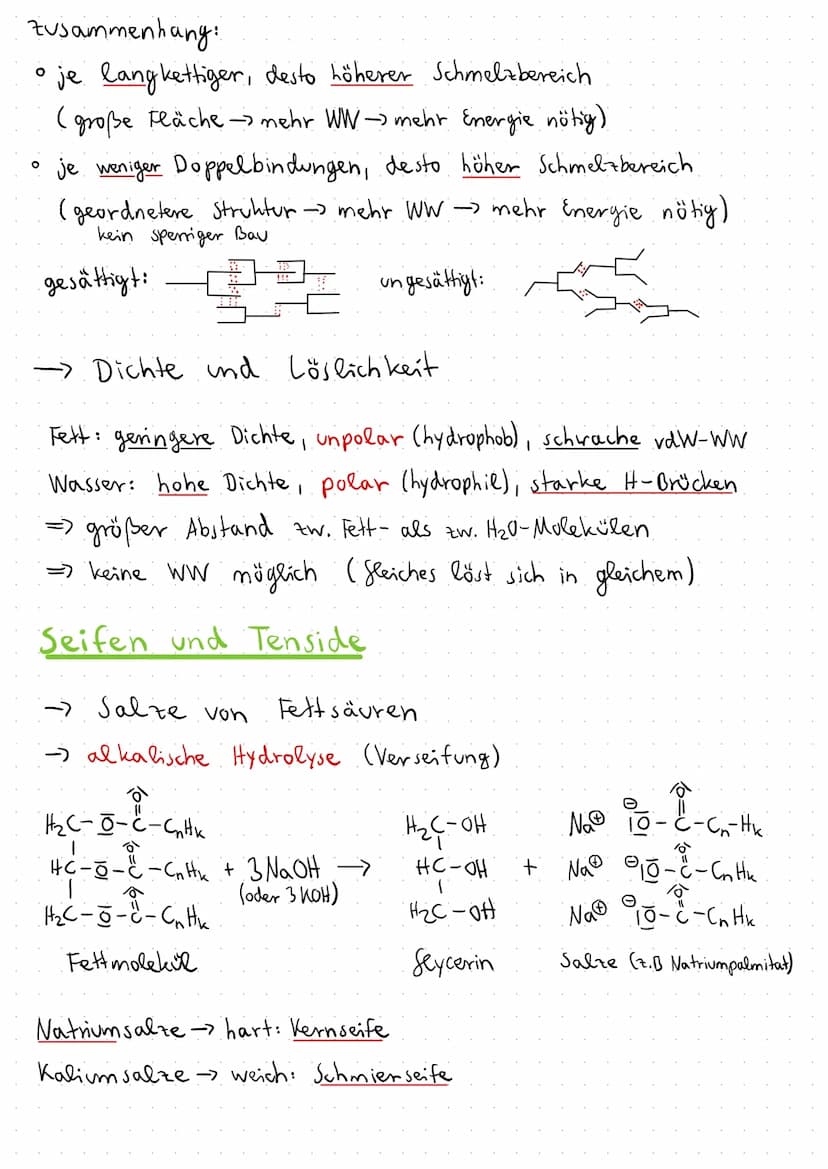 Zusammenhang:
° je langkettiger, desto höherer Schmelzbereich
(große Fläche → mehr WW → mehr Energie nötig)
° je weniger Doppelbindungen, desto höher Schmelzbereich
(geordnetere Struktur → mehr WW → mehr Energie nötig)
kein sperriger Bau
gesättigt: ungesättigt:
→ Dichte und Löslichkeit
Fett: geringere Dichte, unpolar (hydrophob), schwache vdW-WW
Wasser: hohe Dichte, polar (hydrophil), starke H-Brücken
⇒ größer Abstand zw. Fett- als zw. H₂O-Molekülen
⇒ keine WW möglich (Gleiches löst sich in gleichem)
Seifen und Tenside
→ Salze von Fettsäuren
→ alkalische Hydrolyse (Verseifung)
O O
H₂C-O-C-CnHk H₂C-OH Na⊕ ⊖O-C-Cn-Hk
O O
HC-O-C-CnHk + 3 NaOH → HC-OH + Na⊕ ⊖O-C-CnHk
O (oder 3 KOH) O
H₂C-O-C-CnHk H₂C-OH Na⊕ ⊖O-C-CnHk
Fettmolekül Glycerin Salze (z.B Natriumpalmitat)
Natriumsalze → hart: Kernseife
Kaliumsalze → weich: Schmierseife